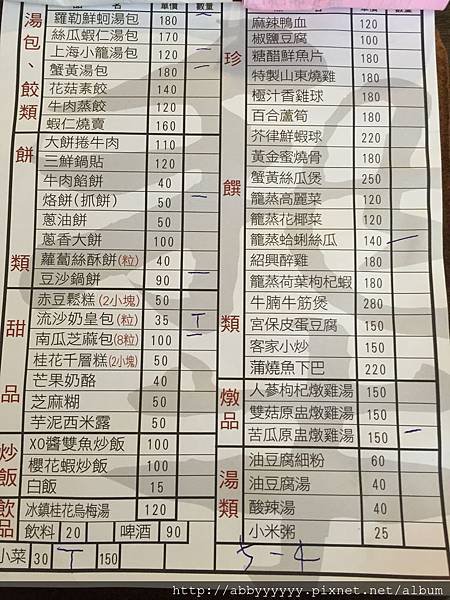 湯包、餃類
單價 數量
羅勒鮮蚵湯包 180 一
絲瓜蝦仁湯包 170
上海小籠湯包 120 一
蟹黃湯包 180 一
花菇素餃 140
牛肉蒸餃 120
蝦仁燒賣 160
餅類
大餅捲牛肉 110
三鮮鍋貼 120
牛肉餡餅 40
烙餅(抓餅) 50 一
蔥油餅 50
蔥香大餅 100
蘿蔔絲酥餅(粒) 40
豆沙鍋餅 90 一
甜品
赤豆鬆糕(2小塊) 50
流沙奶皇包(粒) 35 T
南瓜芝麻包(8粒) 100 一
桂花千層糕(2小塊) 50
芒果奶酪 40
芝麻糊 50
芋泥西米露 50
炒飯
XO醬雙魚炒飯 100
櫻花蝦炒飯 100
白飯 15
飲品
冰鎮桂花烏梅湯 120
飲料 20 啤酒 90
小菜 30 T 150
珍饌類
單價 數量
麻辣鴨血 120
椒鹽豆腐 100
糖醋鮮魚片 180
特製山東燒雞 180
極汁香雞球 180
百合蘆筍 180
芥律鮮蝦球 220
黃金蜜燒骨 180
蟹黃絲瓜煲 250
籠蒸高麗菜 120
籠蒸花椰菜 120
籠蒸蛤蜊絲瓜 140
紹興醉雞 180
籠蒸荷葉枸杞蝦 180
牛腩牛筋煲 280
宮保皮蛋豆腐 150
客家小炒 150
蒲燒魚下巴 220
燉品
人參枸杞燉雞湯 150
雙菇原盅燉雞湯 150
苦瓜原盅燉雞湯 150 一
湯類
油豆腐細粉 60
油豆腐湯 40
酸辣湯 40
小米粥 25
5-4
http://abbyyyyyy.pixnet.net/album